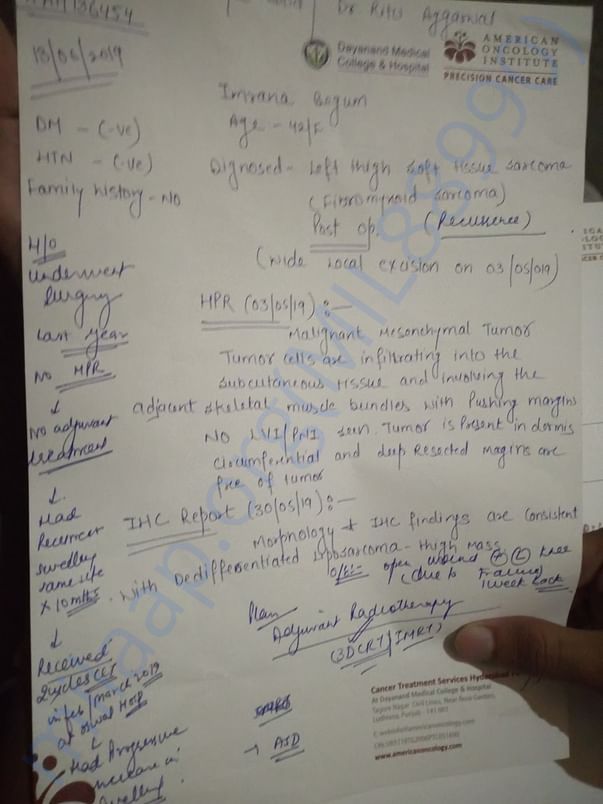 Dr. Ritu Aggarwal
Dayanand Medical
College & Hospital
AMERICAN
ONCOLOGY
INSTITUTE
PRECISION CANCER CARE
18/06/2019
Imrana Begum
Age - 42/F
DM - (-ve)
HTN - (-ve)
Family history - No
Dignosed - Left thigh soft tissue sarcoma
(Fibromyxoid sarcoma)
Post op. (Recurrence)
(wide local excision on 03/05/019)
H/O
underwent
surgery
last year
No HPR
↓
No adjuvant
treatment
↓
Had
recurrent
swelling
same site
x 10 mths
↓
Received
2 cycles CCT
in feb/March 2019
at oswal Hosp
↓
Had Progressive
increase in
swelling
HPR (03/05/19) :-
Malignant Mesenchymal Tumor
Tumor cells are infiltrating into the
subcutaneous tissue and involving the
adjacent skeletal muscle bundles with Pushing margins
No LVI/PNI seen. Tumor is Present in dermis
circumferential and deep Resected margins are
free of tumor
IHC Report (30/05/19) :-
Morphology & IHC findings are consistent
with Dedifferentiated Liposarcoma - thigh mass
O/E:- open wound (+) (L) knee
(due to Trauma)
1 week back
Plan
Adjuvant Radiotherapy
(3DCRT/IMRT)
→ AJD
Cancer Treatment Services Hyderabad
At Dayanand Medical College & Hospital
Tagore Nagar Civil Lines, Near Rose Garden,
Ludhiana, Punjab - 141 001
www.americanoncology.com